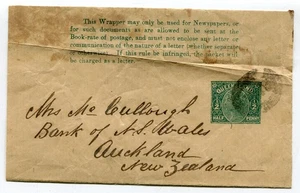 This Wrapper may only be used for Newspapers, or
for such documents as are allowed to be sent at the
Book-rate of postage, and must not enclose any letter or
communication of the nature of a letter (whether separate
or otherwise). If this rule be infringed, the packet will
be charged as a letter.
HALF PENNY
Mrs Mc Cullough
Bank of N.S. Wales
Auckland
New Zealand